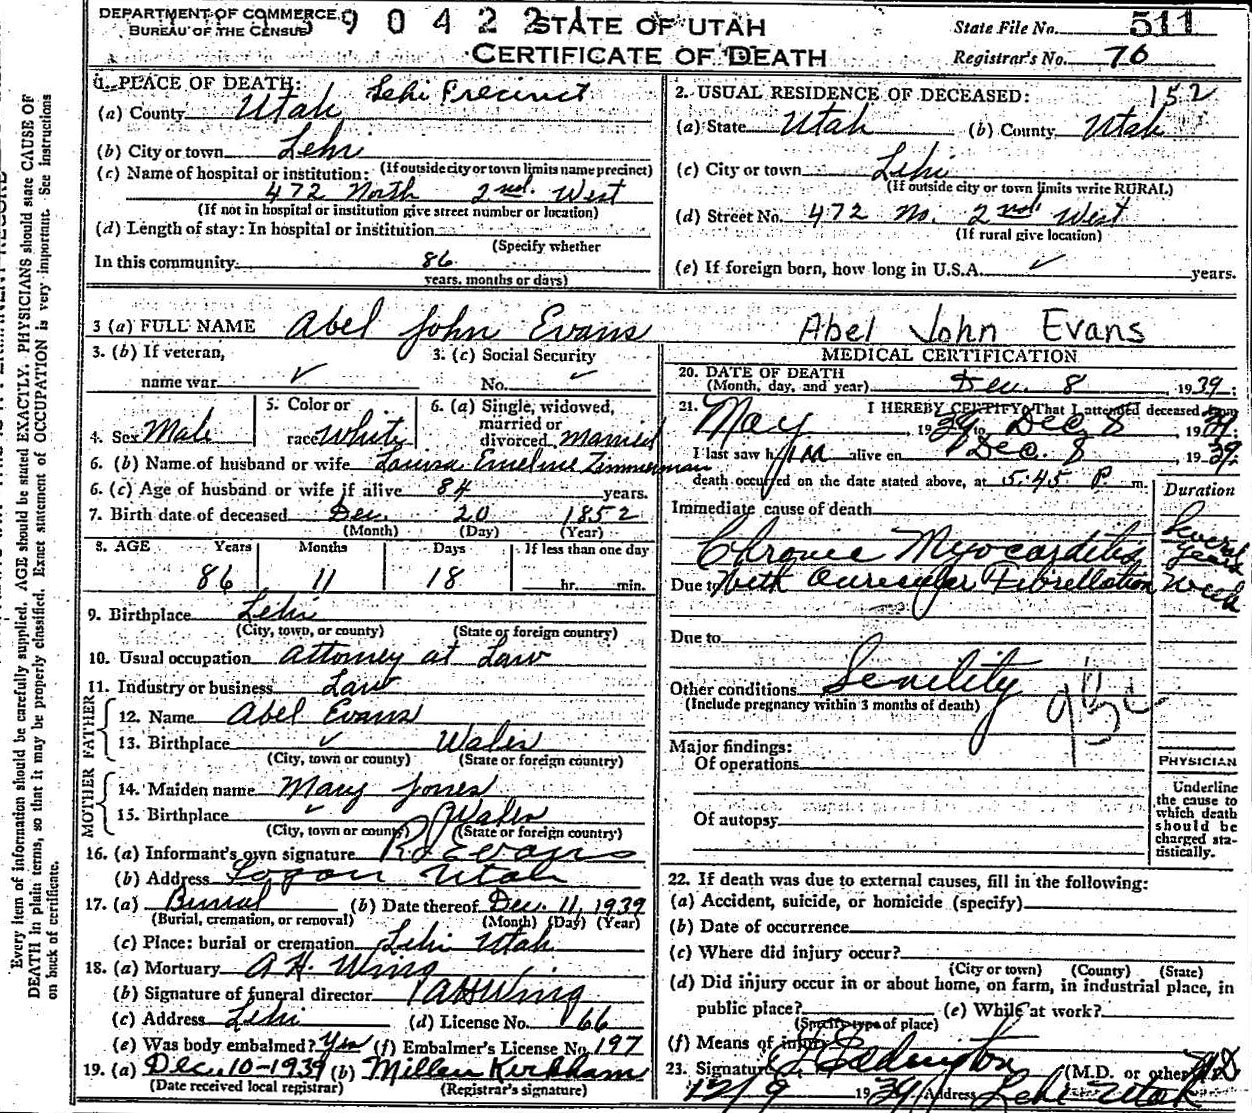 DEPARTMENT OF COMMERCE
BUREAU OF THE CENSUS
9 0 4 2 2 1
STATE OF UTAH
CERTIFICATE OF DEATH
State File No. 511
Registrar's No. 70
1. PLACE OF DEATH: Lehi Precinct
(a) County Utah
(b) City or town Lehi
(If outside city or town limits name precinct)
(c) Name of hospital or institution:
472 North 2nd. West
(If not in hospital or institution give street number or location)
(d) Length of stay: In hospital or institution
(Specify whether
In this community 86
years, months or days)
2. USUAL RESIDENCE OF DECEASED: 152
(a) State Utah (b) County Utah
(c) City or town Lehi
(If outside city or town limits write RURAL)
(d) Street No. 472 No. 2nd West
(If rural give location)
(e) If foreign born, how long in U.S.A. ✓ years.
3 (a) FULL NAME Abel John Evans
Abel John Evans
3. (b) If veteran,
name war ✓
3. (c) Social Security
No. ✓
4. Sex Male
5. Color or
race White
6. (a) Single, widowed,
married or
divorced Married
6. (b) Name of husband or wife Louisa Emeline Zimmerman
6. (c) Age of husband or wife if alive 84 years.
7. Birth date of deceased Dec. 20 1852
(Month) (Day) (Year)
8. AGE Years Months Days If less than one day
86 11 18 hr. min.
9. Birthplace Lehi
(City, town, or county) (State or foreign country)
10. Usual occupation Attorney at Law
11. Industry or business Law
FATHER
12. Name Abel Evans
13. Birthplace ✓ Wales
(City, town or county) (State or foreign country)
MOTHER
14. Maiden name Mary Jones
15. Birthplace ✓ Wales
(City, town or county) (State or foreign country)
16. (a) Informant's own signature Evans
(b) Address Logan Utah
17. (a) Burial (b) Date thereof Dec. 11, 1939
(Burial, cremation, or removal) (Month) (Day) (Year)
(c) Place: burial or cremation Lehi Utah
18. (a) Mortuary A.H. Wing
(b) Signature of funeral director AH Wing
(c) Address Lehi (d) License No. 66
(e) Was body embalmed? Yes (f) Embalmer's License No. 197
19. (a) Dec 10-1939 (b) Millan Kirkham
(Date received local registrar) (Registrar's signature)
MEDICAL CERTIFICATION
20. DATE OF DEATH
(Month, day, and year) Dec. 8, 1939;
21. I HEREBY CERTIFY, That I attended deceased from
May 1939 to Dec 8, 1939.
I last saw him alive on Dec. 8, 1939;
death occurred on the date stated above, at 5:45 P. m.
Duration
Immediate cause of death
Chronic Myocarditis Several years
Due to With Auricular Fibrellation Week
Due to
Other conditions Senility
(Include pregnancy within 3 months of death)
Major findings:
Of operations
Of autopsy
PHYSICIAN
Underline
the cause to
which death
should be
charged sta-
tistically.
22. If death was due to external causes, fill in the following:
(a) Accident, suicide, or homicide (specify)
(b) Date of occurrence
(c) Where did injury occur?
(City or town) (County) (State)
(d) Did injury occur in or about home, on farm, in industrial place, in
public place? (e) While at work?
(Specify type of place)
(f) Means of injury
23. Signature Eddington (M.D. or other) MD
12/9 1939 Address Lehi Utah
Every item of information should be carefully supplied. AGE should be stated EXACTLY. PHYSICIANS should state CAUSE OF
DEATH in plain terms, so that it may be properly classified. Exact statement of OCCUPATION is very important. See instructions
on back of certificate.